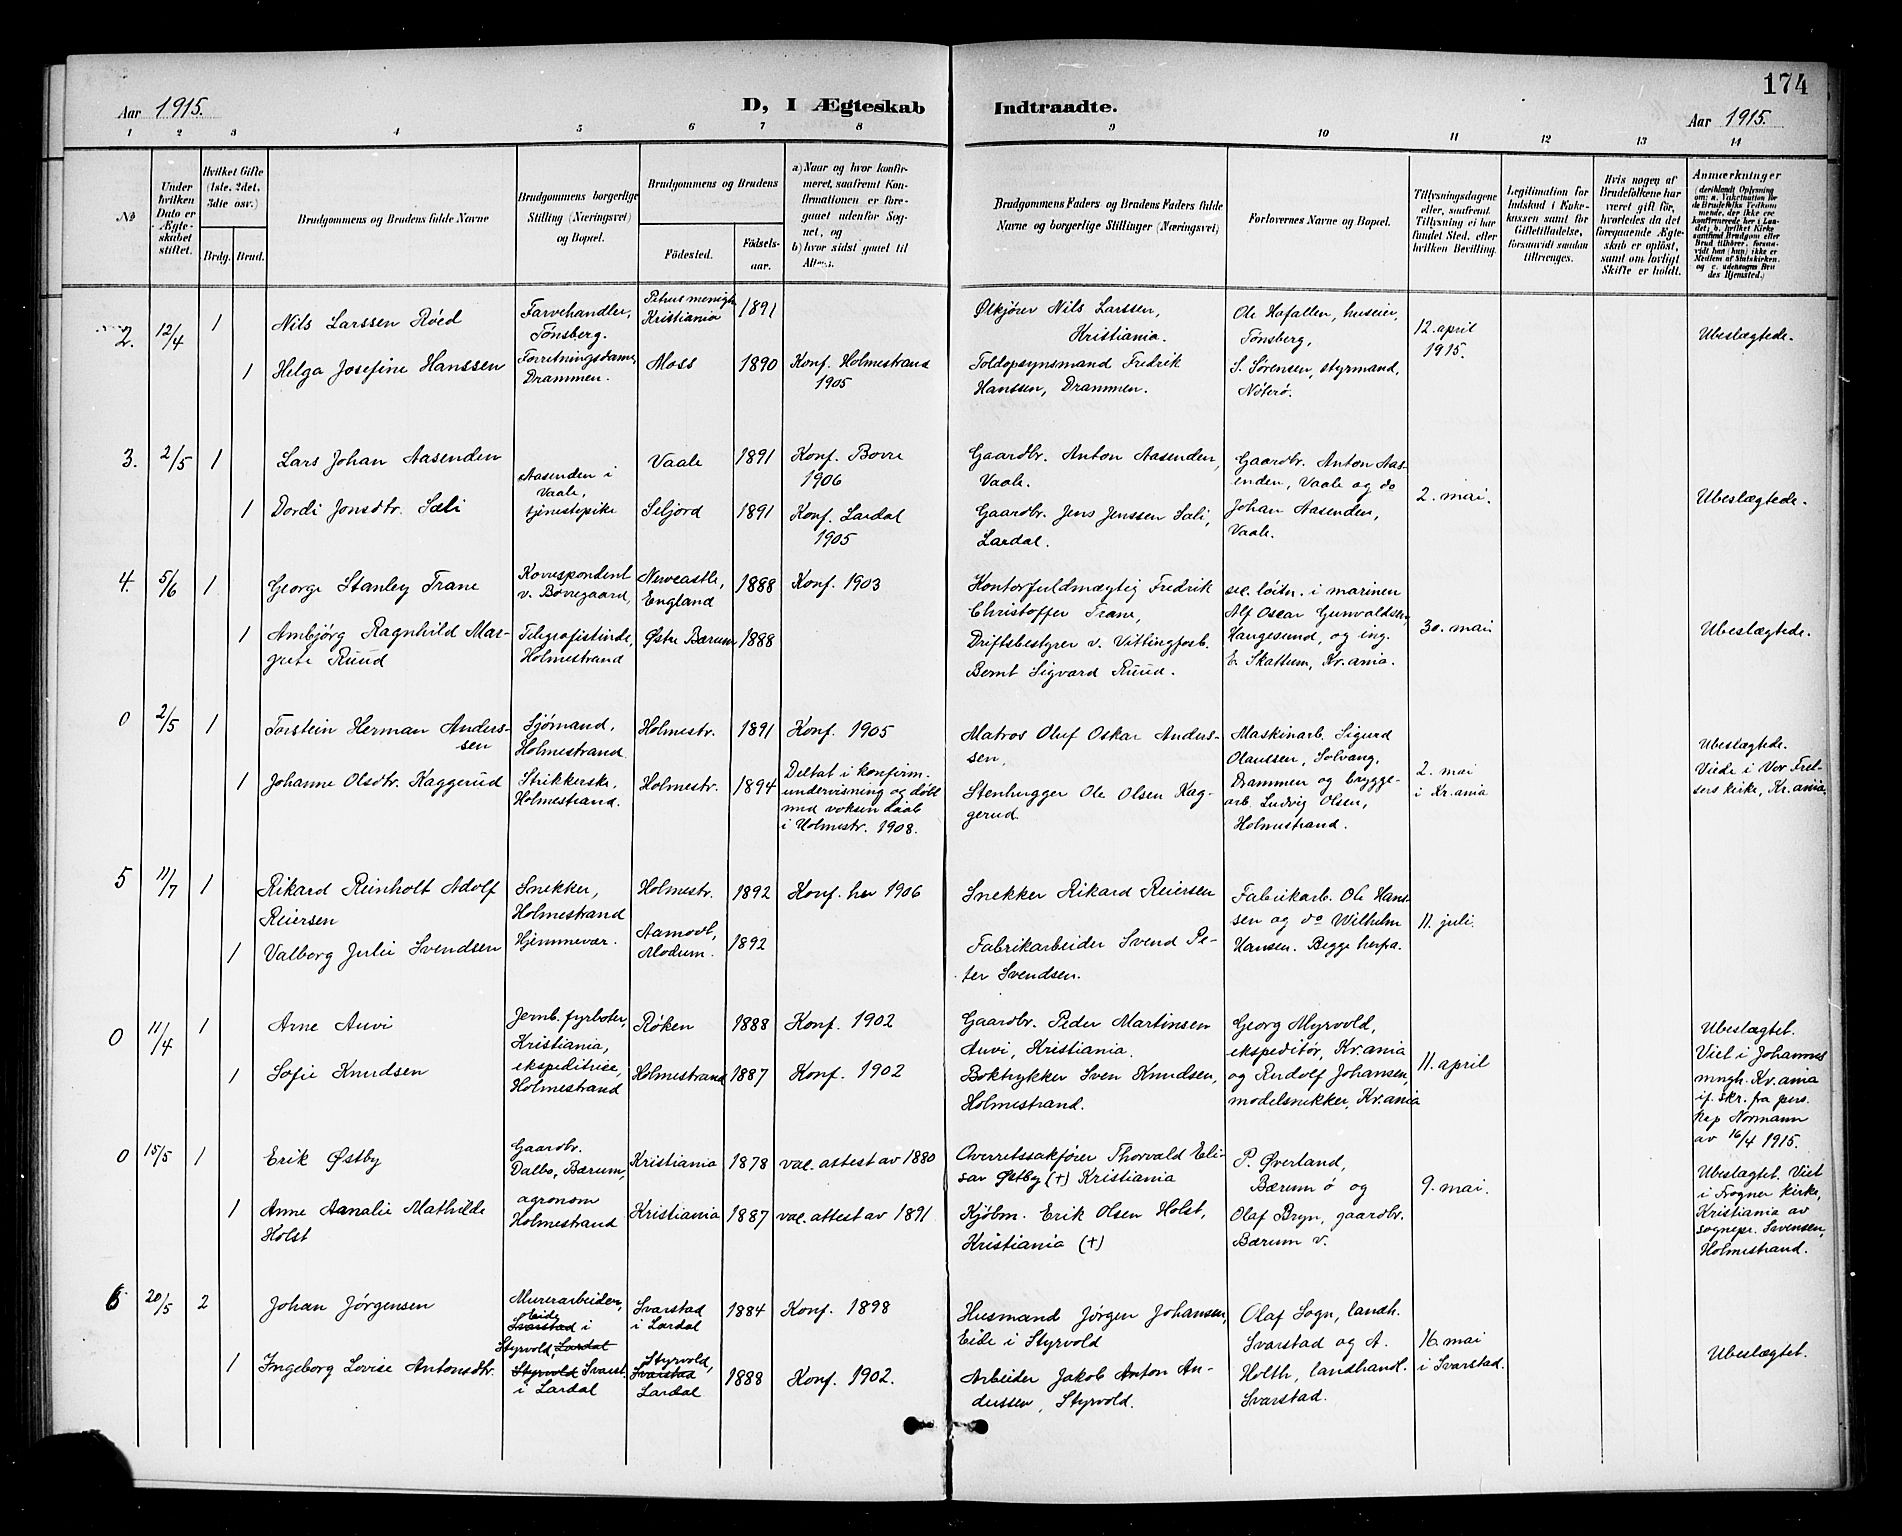 174
Aar 1915.
D, I Ægteskab Indtraadte.
Aar 1915.
1 2 3 4 5 6 7 8 9 10 11 12 13 14
No
Under hvilken Dato er Ægteskabet stiftet.
Hvilket Gifte (1ste, 2det, 3die osv.)
Brdg. Brud.
Brudgommens og Brudens fulde Navne
Brudgommens borgerlige Stilling (Næringsvei) og Bopæl.
Brudgommens og Brudens
Födested.
Födselsaar.
a) Naar og hvor konfirmeret, saafremt Konfirmationen er foregaaet udenfor Sognet, og
b) hvor sidst gaaet til Alters.
Brudgommens Faders og Brudens Faders fulde Navne og borgerlige Stillinger (Næringsvei)
Forlovernes Navne og Bopæl.
Tillysningsdagene eller, saafremt Tillysning ei har fundet Sted, efter hvilken Bevilling.
Legitimation for Indskud i Enkekassen samt for Giftetilladelse, forsaavidt saadan tiltrænges.
Hvis nogen af Brudefolkene har været gift før, hvorledes da det foregaaende Ægteskab er oplöst, samt om lovligt Skifte er holdt.
Anmærkninger
2. 12/4 1 Nils Larssen Röed
Farvehandler, Tønsberg.
Petrus menigh. Kristiania 1891
Ølkjörer Nils Larssen, Kristiania.
Ole Hafallen, huseier, Tønsberg,
S. Sörensen, styrmand, Nöterö.
12. april 1915.
Ubeslægtede.
1 Helga Josefine Hanssen
Forretningsdame, Drammen.
Moss 1890 Konf. Holmestrand 1905
Toldopsynsmand Fredrik Hanssen, Drammen.
3. 2/5 1 Lars Johan Aasenden
Aasenden i Vaale,
Vaale 1891 Konf. Borre 1906
Gaardbr. Anton Aasenden, Vaale.
Gaardbr. Anton Aasenden, Vaale og do Johan Aasenden, Vaale.
2. mai.
Ubeslægtede.
1 Dordi Jonsdtr. Sæli
tjenestepike
Seljord 1891 Konf. Lardal 1905
Gaardbr. Jens Jenssen Sæli, Lardal.
4. 5/6 1 George Stanley Trane
Korrespondent v. Bövregaard,
Newcastle, England 1888 Konf. 1903
Kontorfuldmægtig Fredrik Christoffer Trane,
sec. löitn. i marinen Alf Oscar Gunvaldsen, Haugesund, og ing. E. Skattum, Kr.ania.
30. mai
Ubeslægtede.
1 Ambjörg Ragnhild Margrete Ruud
Telegrafistinde, Holmestrand
Østre Bærum 1888
Driftsbestyrer v. Vittingfosb. Bernt Sigvard Ruud.
0 2/5 1 Torstein Herman Anderssen
Sjömand, Holmestrand
Holmestr. 1891 Konf. 1905
Matros Oluf Oskar Anderssen,
Maskinarb. Sigurd Olaussen, Solvang, Drammen og bryggearb. Ludvig Olsen, Holmestrand.
2. mai i Kr.ania
Ubeslægtede. Viede i Vor Frelsers kirke, Kr.ania.
1 Johanne Olsdtr. Kaggerud
Strikkerske, Holmestrand.
Holmestr. 1894
Deltat i konfirm. undervisning og döbt med voksen daab i Holmestr. 1908.
Stenhugger Ole Olsen Kaggerud
5 11/7 1 Rikard Reinholt Adolf Reiersen
Snekker, Holmestrand
Holmestr. 1892 Konf. her 1906
Snekker Rikard Reiersen
Fabrikarb. Ole Hanssen og do Wilhelm Hansen. Begge herfra.
11. juli.
1 Valborg Julie Svendsen
Hjemmevær.
Aamodt, Modum. 1892
Fabrikarbeider Svend Peter Svendsen.
0 11/4 1 Arne Auvi
Jernb. fyrböter, Kristiania,
Röken 1888 Konf. 1902
Gaardbr. Peder Martinsen Auvi, Kristiania.
Georg Myrvold, ekspeditör, Kr.ania og Rudolf Johansen, modelsnekker, Kr.ania
11. april
Ubeslægtet. Viet i Johannes mngh. Kr.ania if. skr. fra pers. kap Normann av 16/4 1915.
1 Sofie Knudsen
ekspeditrice, Holmestrand
Holmestrand 1887 Konf. 1902
Boktrykker Sven Knudsen, Holmestrand.
0 15/5 1 Erik Østby
Gaardbr. Dalbo, Bærum,
Kristiania 1878 vac. attest av 1880
Overretssakförer Thorvald Elisar Østby (+) Kristiania
P. Øverland, Bærum ö og Olaf Bryn, gaardbr. Bærum v.
9. mai.
Ubeslægtet. Viet i Frogner kirke, Kristiania av sognepr. Svensen, Holmestrand.
1 Anne Amalie Mathilde Holst
agronom Holmestrand
Kristiania 1887 vac. attest av 1891
Kjöbm. Erik Olsen Holst, Kristiania (+)
6 20/5 2 Johan Jörgensen
Murerarbeider, Eide Svarstad i Styrvold, Lardal
Svarstad i Lardal 1884 Konf. 1898
Husmand Jörgen Johansen, Eide i Styrvold
Olaf Sogn, landh. Svarstad og A. Holth, landhandl. Svarstad.
16. mai i Svarstad.
Ubeslægtet.
1 Ingeborg Lovise Antonsdtr.
Styrvold Svarst. i Lardal
Styrvold, Svarstad Lardal 1888 Konf. 1902.
Arbeider Jakob Anton Anderssen, Styrvold.